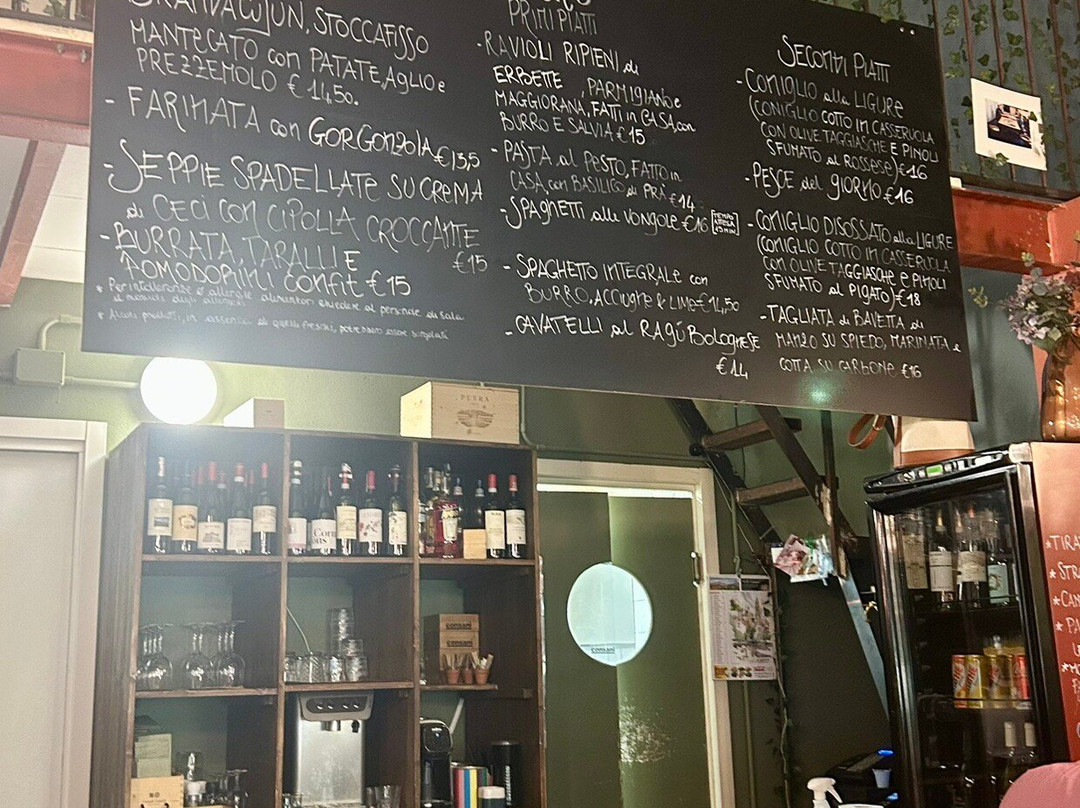 BRANDACUJUN, STOCCAFISSO
MANTECATO con PATATE, AGLIO e
PREZZEMOLO € 14,50.
- FARINATA con GORGONZOLA €13,5
- SEPPIE SPADELLATE SU CREMA
di CECI CON CIPOLLA CROCCANTE
€15
- BURRATA, TARALLI E
POMODORINI confit €15
* Per intolleranze e allergie alimentari chiedere al personale di sala
* Alcuni prodotti, in assenza di quelli freschi, potrebbero essere surgelati
PRIMI PIATTI
- RAVIOLI RIPIENI di
ERBETTE, PARMIGIANO e
MAGGIORANA, FATTI in CASA, con
BURRO E SALVIA €15
- PASTA al PESTO, FATTO in
CASA, con BASILICO di PRÀ €14
- SPAGHETTI alle VONGOLE €16
TEMPO
ATTESA
15 MIN
- SPAGHETTO INTEGRALE con
BURRO, ACCIUGHE & LIME €14,50
- CAVATELLI al RAGÙ Bolognese
€ 14
SECONDI PIATTI
- CONIGLIO alla LIGURE
(CONIGLIO COTTO in CASSERUOLA
CON OLIVE TAGGIASCHE e PINOLI
SFUMATO al ROSSESE) €16
- PESCE del GIORNO €16
- CONIGLIO DISOSSATO alla LIGURE
(CONIGLIO COTTO in CASSERUOLA
CON OLIVE TAGGIASCHE e PINOLI
SFUMATO al PIGATO) €18
- TAGLIATA di BAVETTA di
MANZO SU SPIEDO, MARINATA e
COTTA SU CARBONE €16
PETRA